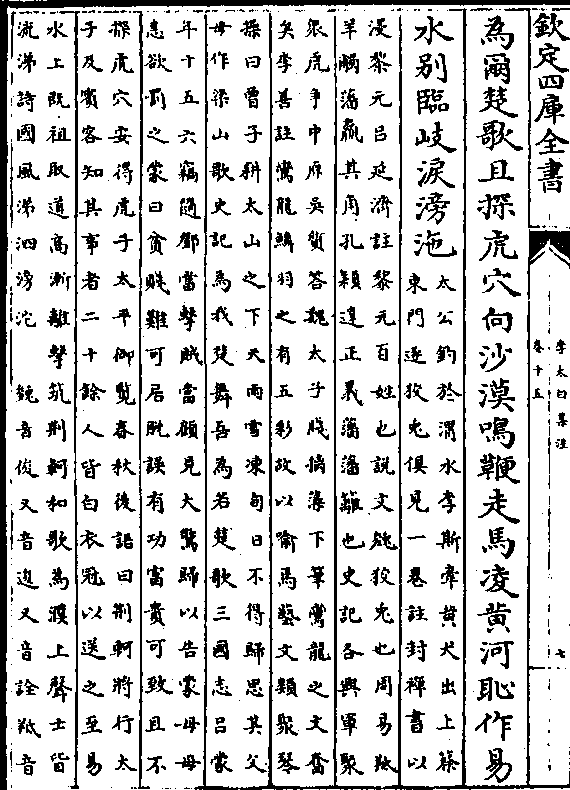 欽定四庫全書
李太白集注
卷十五
七
為爾楚歌且探虎穴向沙漠鳴鞭走馬凌黄河恥作易
水别臨岐淚滂沱
太公釣於渭水李斯牽黄犬出上蔡
東門逐狡兔俱見一卷註封禪書以
浸黎元吕延濟註黎元百姓也説文㕙狡兔也周易羝
羊觸藩羸其角孔穎達正義藩藩籬也史記各興軍聚
衆虎爭中原吳質答魏太子牋摛藻下筆鸞龍之文奮
矣李善註鸞龍鱗羽之有五彩故以喻焉藝文類聚琴
操曰曽子耕太山之下天雨雪凍旬日不得歸思其父
母作梁山歌史記為我楚舞吾為若楚歌三國志吕蒙
年十五六竊隨鄧當擊賊當顧見大驚歸以告蒙母母
恚欲罰之蒙曰貧賤難可居脱誤有功富貴可致且不
探虎穴安得虎子太平御覽春秋後語曰荆軻將行太
子及賓客知其事者二十餘人皆白衣冠以送之至易
水上既祖取道高漸離擊筑荆軻和歌為濮上聲士皆
流涕詩國風涕泗滂沱 㕙音俊又音逡又音詮羝音